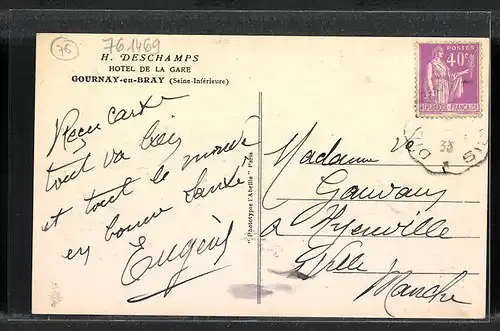 76
76 1469
H. DESCHAMPS
HOTEL DE LA GARE
GOURNAY-en-BRAY (Seine-Inférieure)
Reçu carte
tout va bien
et tout le monde
en bonne santé
Eugène
"Phototypie l'Abeille" Paris
POSTES
40c
REPUBLIQUE FRANÇAISE
38
Madame Ve
à
Manche